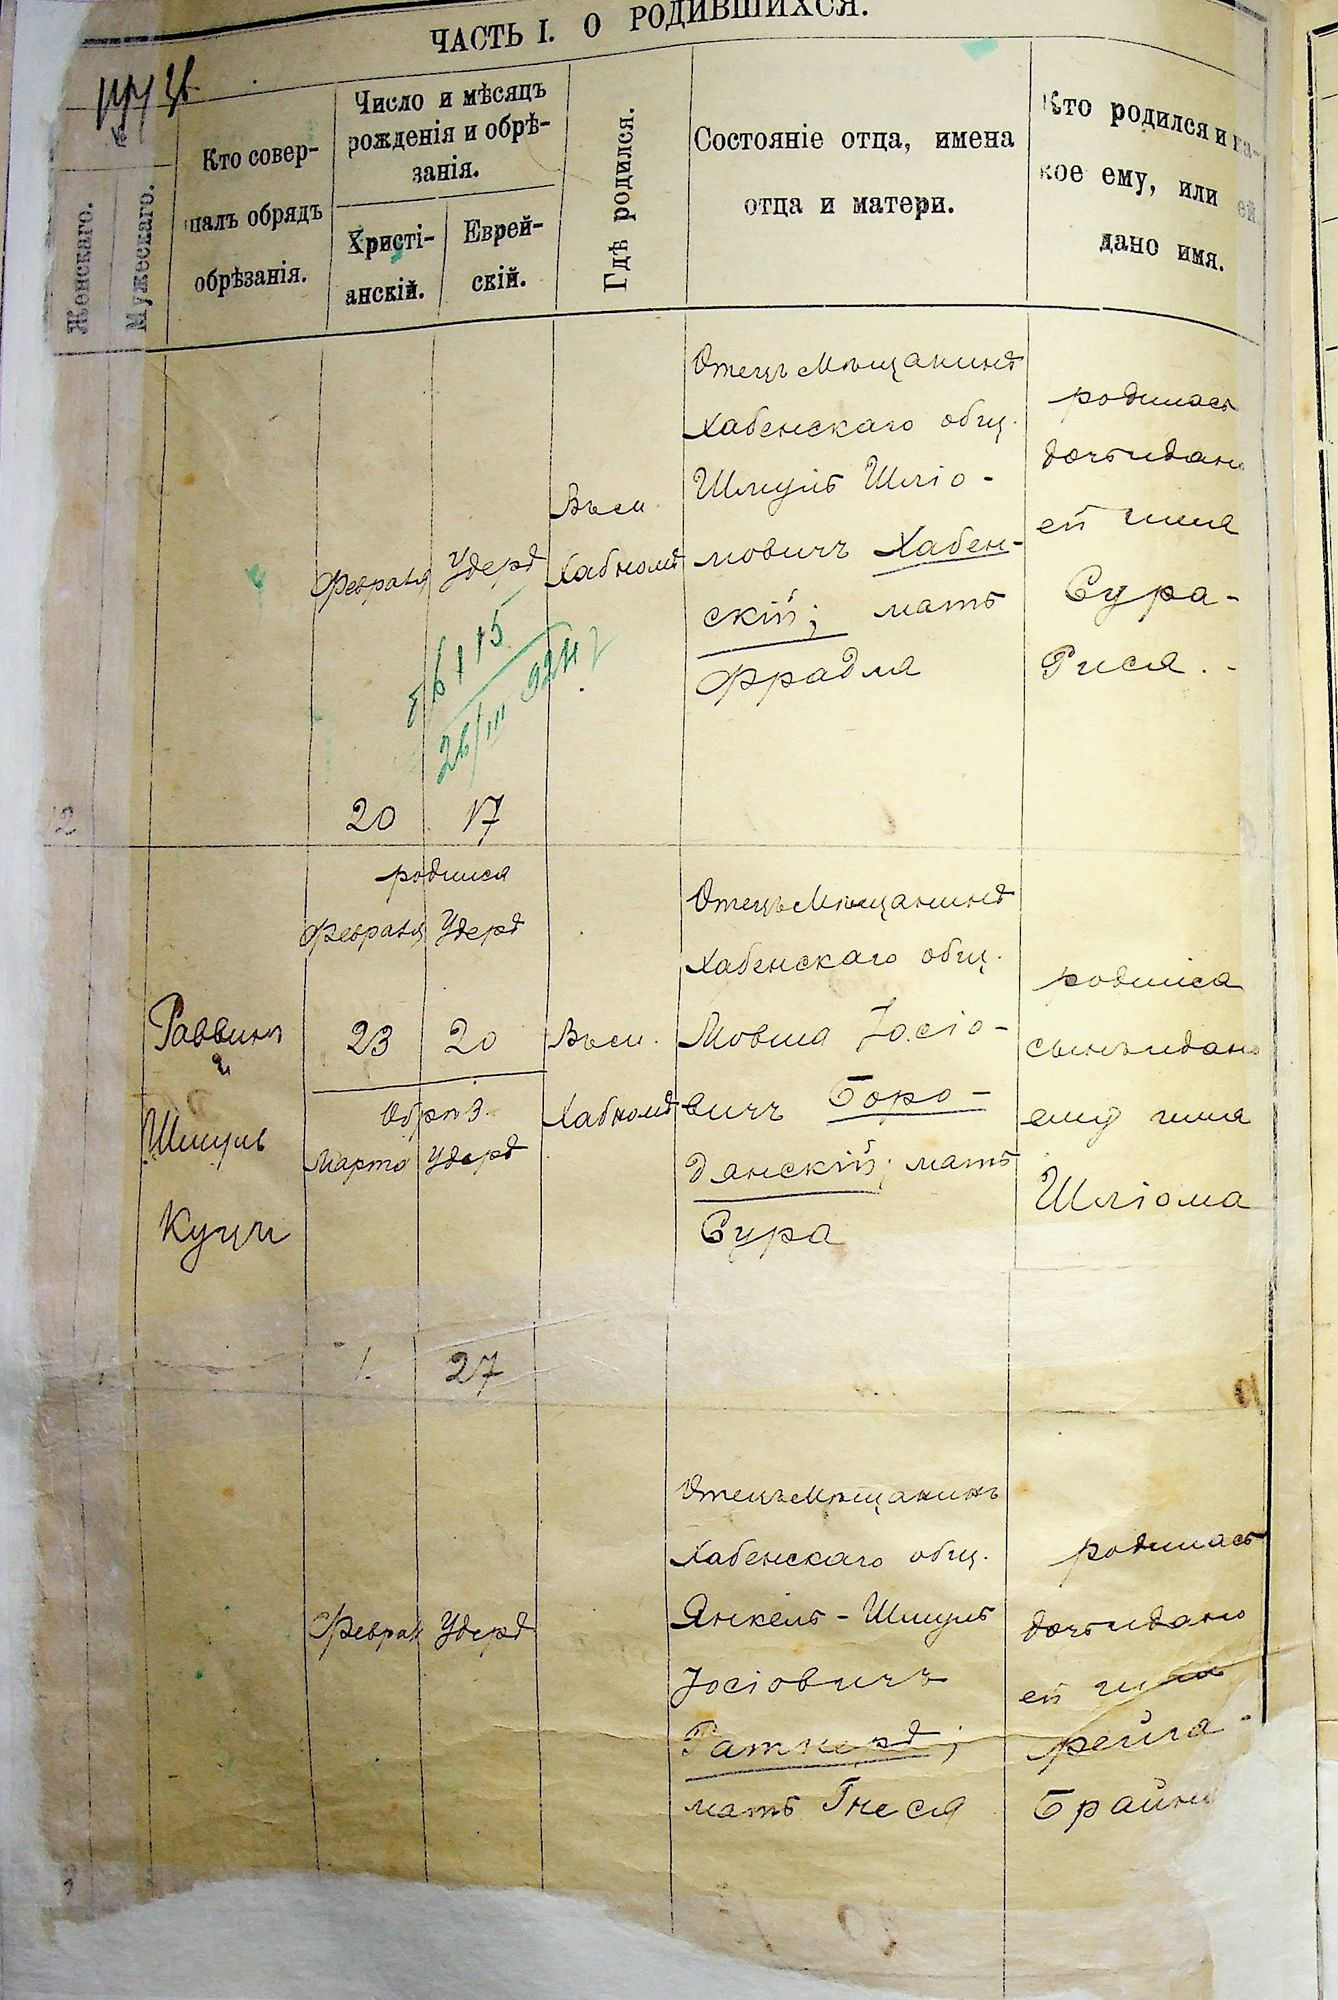 ЧАСТЬ I. О РОДИВШИХСЯ.
Женскаго.
Мужескаго.
Кто совер-
шалъ обрядъ
обрѣзанія.
Число и мѣсяцъ
рожденія и обрѣ-
занія.
Христі-
анскій.
Еврей-
скій.
Гдѣ родился.
Состояніе отца, имена
отца и матери.
Кто родился и ка-
кое ему, или ей
дано имя.
2
Февраля
20
Удеръ
17
Въ м.
Хабномъ
Отецъ Мѣщанинъ
Хабенскаго общ.
Шмуль Шліо-
мовичъ Хабен-
скій; мать
Фрадля
родилась
дочь и дано
ей имя
Сура-
Рися.-
26/III 924
Раввинъ
Шмуль
Куцы
родился
Февраля Удеръ
23 20
Обрѣз.
Марта Удеръ
1. 27
Въ м.
Хабномъ
Отецъ Мѣщанинъ
Хабенскаго общ.
Мовша Іосіо-
вичъ Боро-
данскій; мать
Сура
родился
сынъ и дано
ему имя
Шліома
Феврал Удеръ
Отецъ Мѣщанинъ
Хабенскаго общ.
Янкель-Шмуль
Іосіовичъ
Ратнеръ;
мать Гнеся
родилась
дочь и дано
ей имя
Рейза-
Брайна